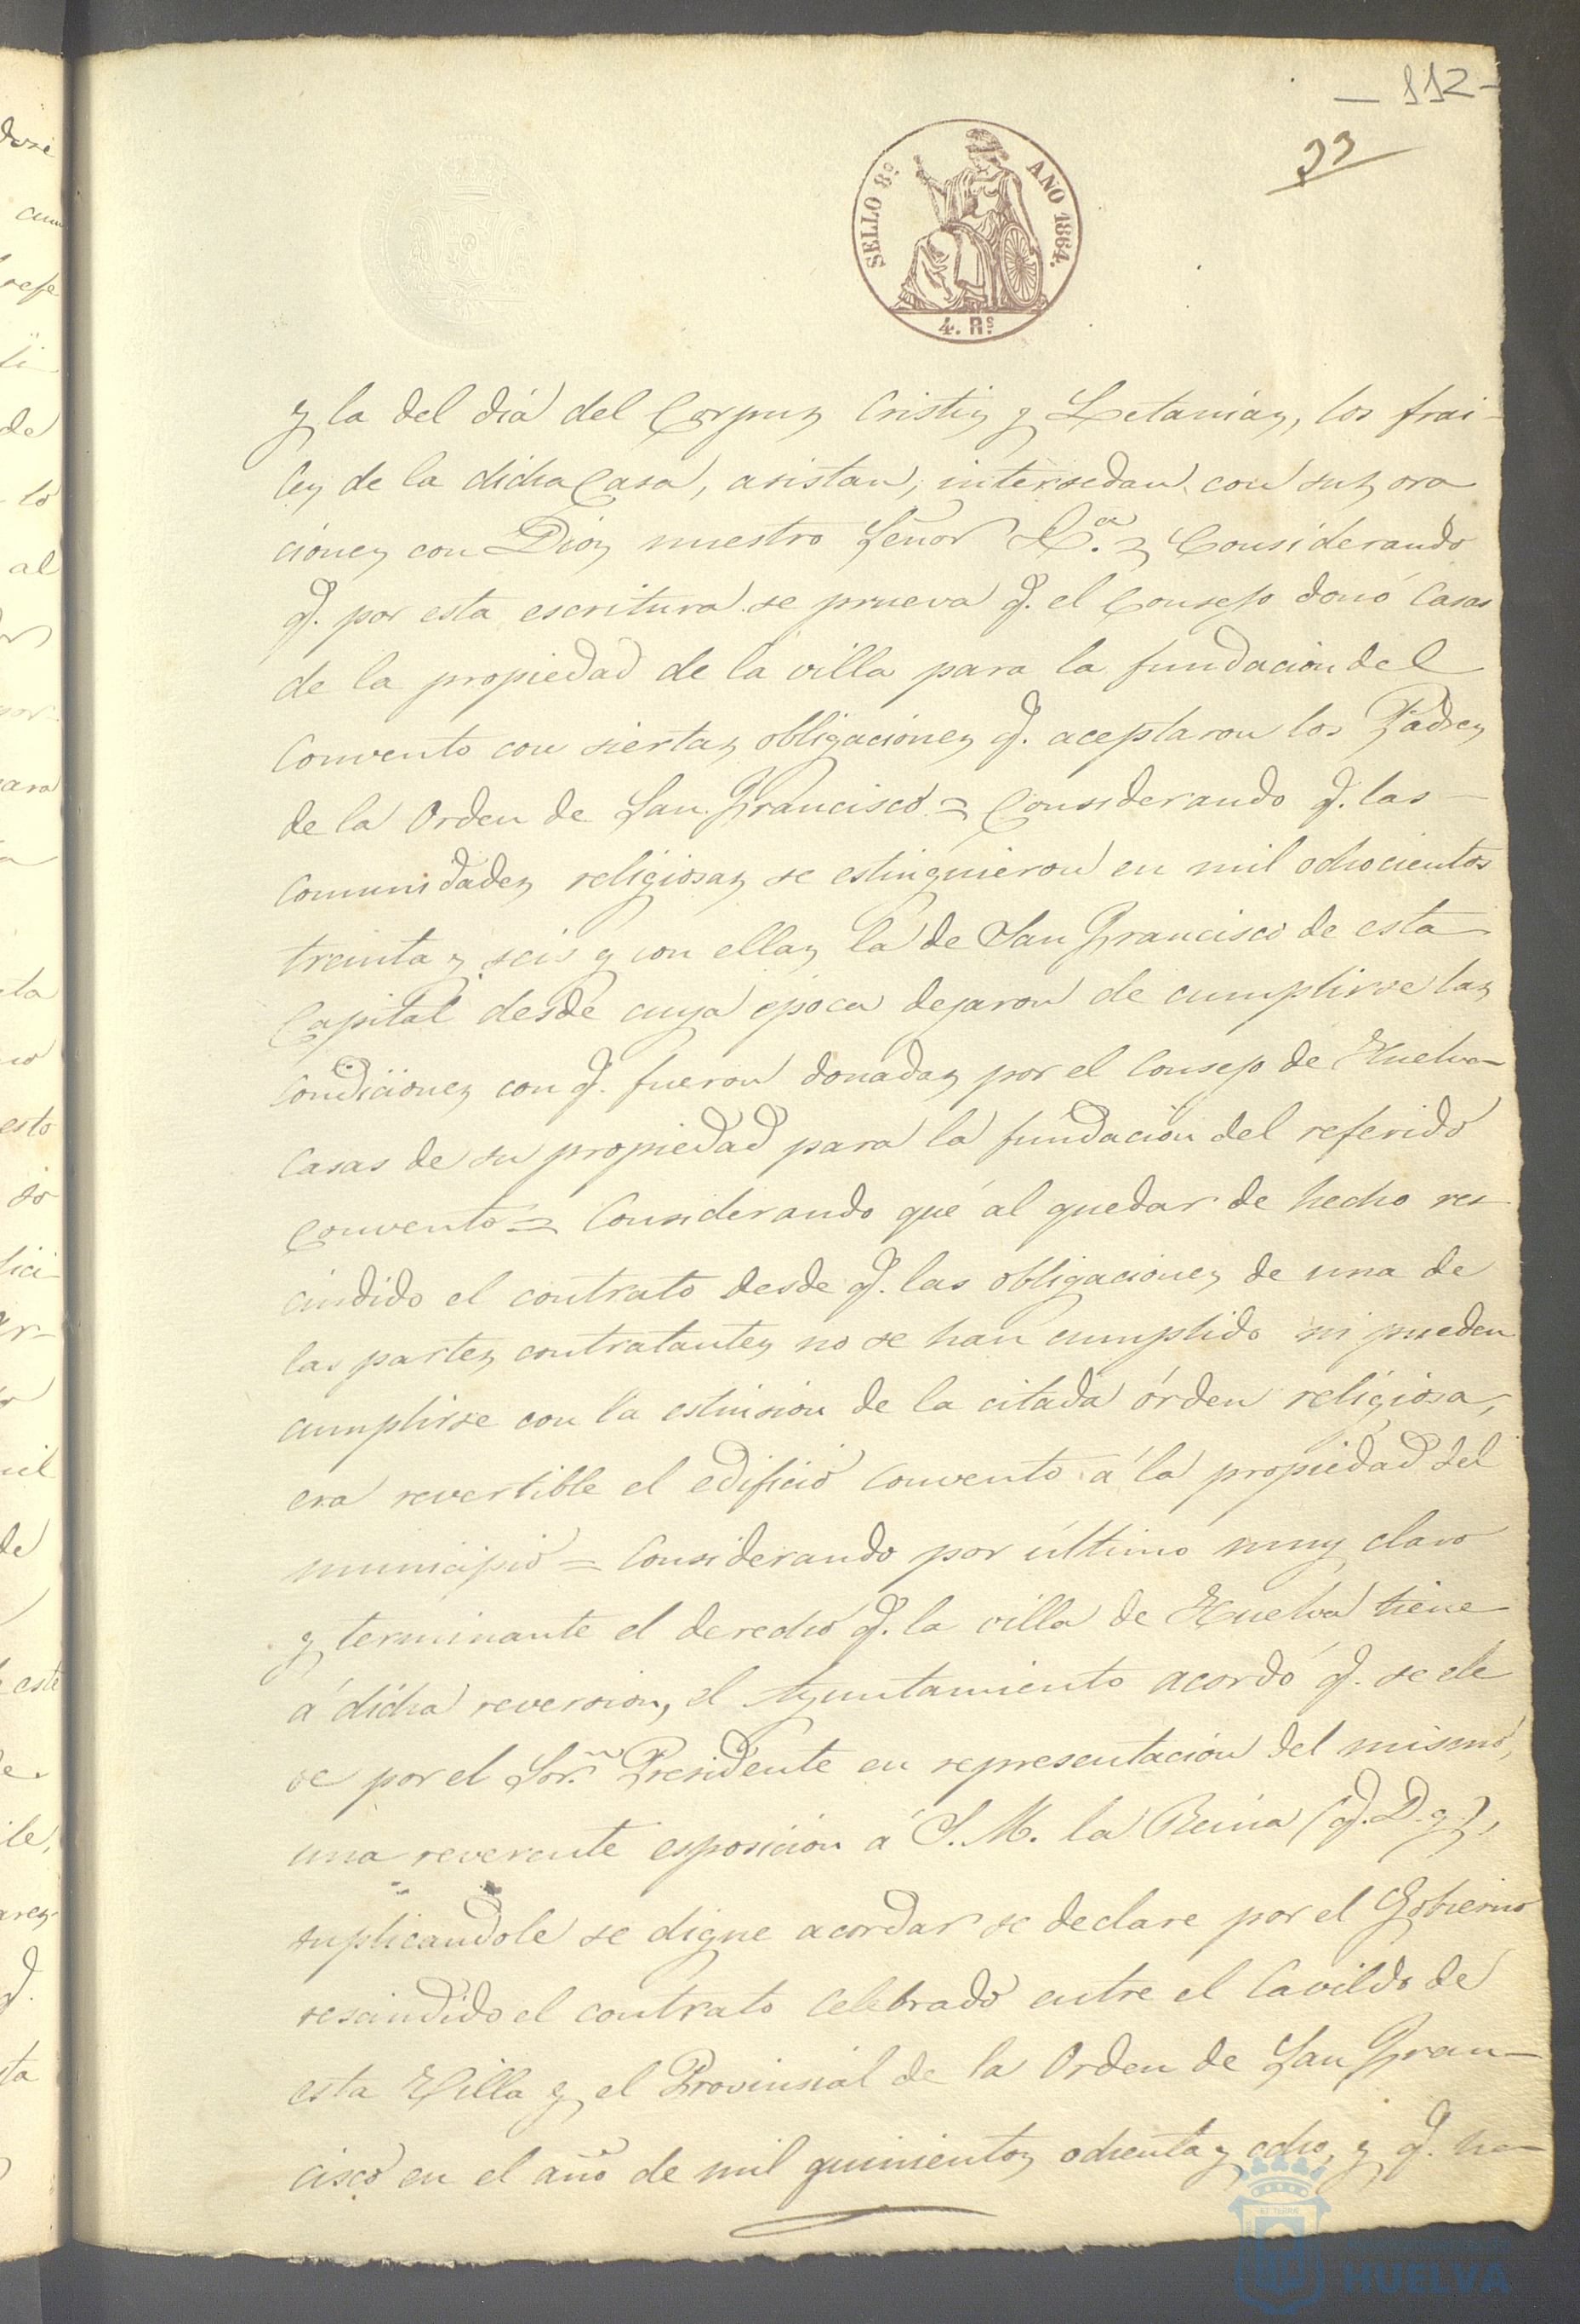 - 112 -
33
SELLO 8º AÑO 1864.
4. Rs
y la del diá del Corpus Cristis y Letanias, los frai-
les de la dicha Casa, asistan, intersedan con sus ora
ciones con Dios nuestro Señor &.ª = Considerando
q. por esta escritura se prueva q. el Consejo donó Casas
de la propiedad de la villa para la fundacion del
Convento con siertas obligaciones q. aceptaron los Padres
de la Orden de San Francisco = Considerando q. las
Comunidades religiosas se estinguieron en mil ochocientos
treinta y seis y con ellas la de San Francisco de esta
Capital desde cuya época dejaron de cumplirse las
Condiciones con q. fueron donadas por el Consejo de Huelva
Casas de su propiedad para la fundacion del referido
convento = Considerando que al quedar de hecho res-
cindido el contrato desde q. las obligaciones de una de
las partes contratantes no se han cumplido ni pueden
cumplirse con la estinsion de la citada órden religiosa,
era revertible el edificio convento á la propiedad del
municipio = Considerando por último muy claro
y terminante el derecho q. la villa de Huelva tiene
á dicha reversion, el Ayuntamiento acordó q. se ele
ve por el Sor. Presidente en representacion del mismo,
una reverente esposicion á S. M. la Reina (q. D. g.),
suplicandole se digne acordar se declare por el Gobierno
rescindido el contrato celebrado entre el Cavildo de
esta Villa y el Provinsial de la Orden de San Fran-
cisco en el año de mil quinientos ochenta y ocho, y q. ha-
HUELVA